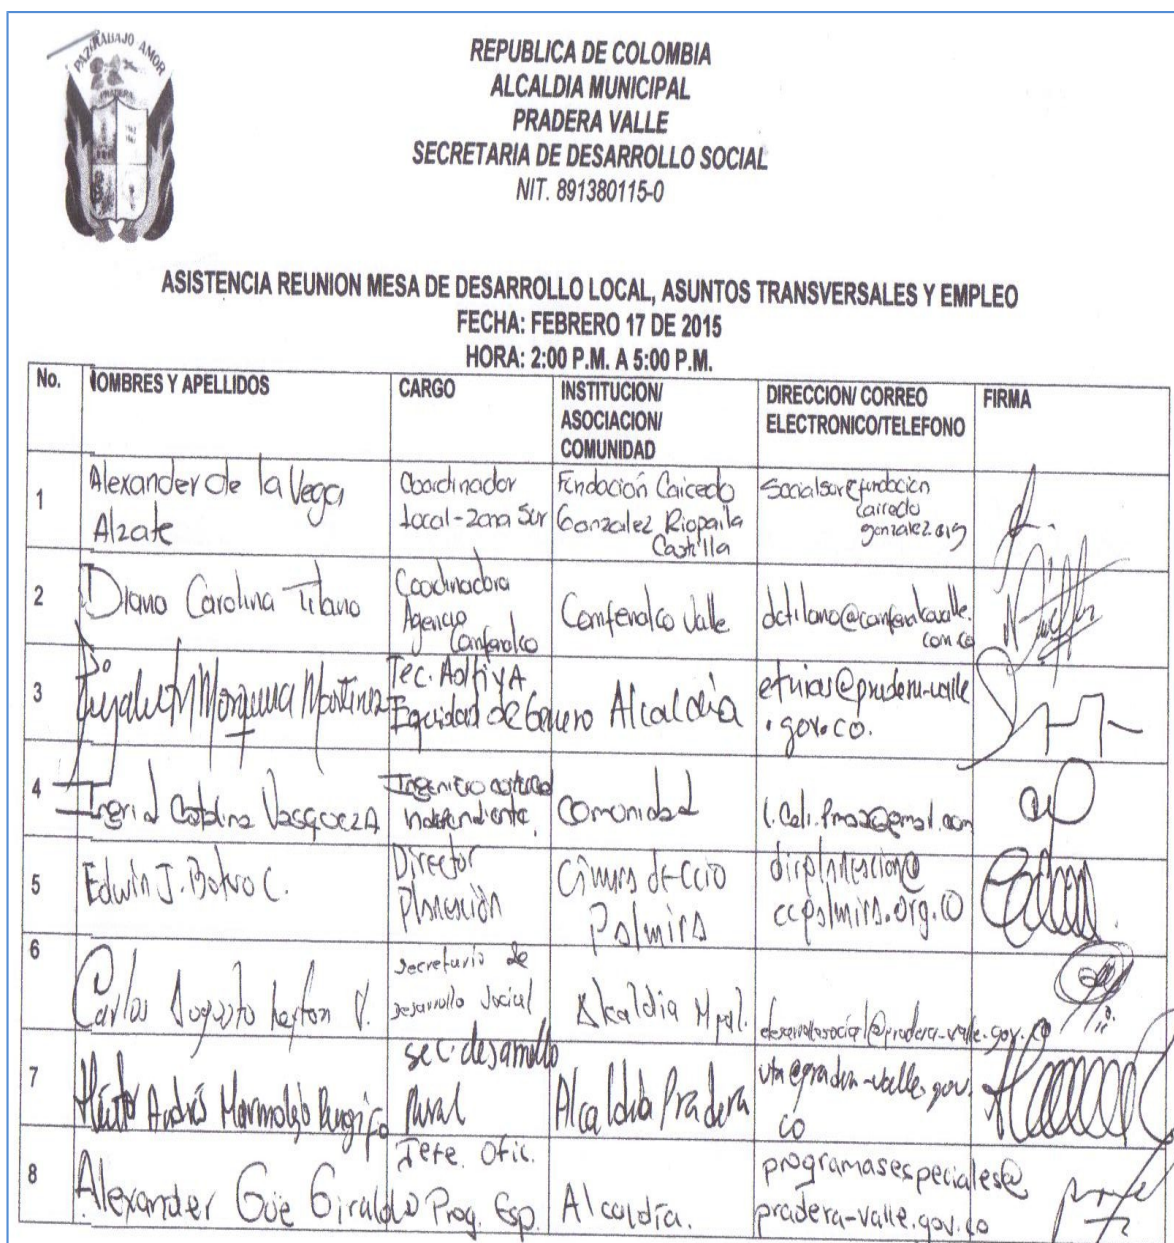 PAZ TRABAJO AMOR
PRADERA
REPUBLICA DE COLOMBIA
ALCALDIA MUNICIPAL
PRADERA VALLE
SECRETARIA DE DESARROLLO SOCIAL
NIT. 891380115-0
ASISTENCIA REUNION MESA DE DESARROLLO LOCAL, ASUNTOS TRANSVERSALES Y EMPLEO
FECHA: FEBRERO 17 DE 2015
HORA: 2:00 P.M. A 5:00 P.M.
No.
NOMBRES Y APELLIDOS
CARGO
INSTITUCION/
ASOCIACION/
COMUNIDAD
DIRECCION/ CORREO
ELECTRONICO/TELEFONO
FIRMA
1
Alexander de la Vega
Alzate
Coordinador
Local-Zona Sur
Fundación Caicedo
Gonzalez Riopaila
Castilla
Socialsur@fundacion
caicedo
gonzalez.org
2
Diana Carolina Tilano
Coordinadora
Agencia
Comfenalco
Comfenalco Valle
dctilano@comfenalcovalle.
com.co
3
Mosquera Martinez
Tec.
Equidad de Genero
Alcaldia
etnias@pradera-valle
.gov.co.
4
Ingrid Catalina Vasquez A
Ingeniero
Independiente
Comunidad
5
Edwin J. Botero C.
Director
Planeación
Cámara de Ccio
Palmira
dirplaneacion@
ccpalmira.org.co
6
Carlos Augusto
Secretario de
Desarrollo Social
Alcaldia Mpal.
desarrollosocial@pradera-valle.gov.co
7
Héctor Andrés Marmolejo Rengifo
sec. desarrollo
Rural
Alcaldia Pradera
8
Alexander Güe Giraldo
Jefe. Ofic.
Prog. Esp.
Alcaldía.
programasespeciales@
pradera-valle.gov.co